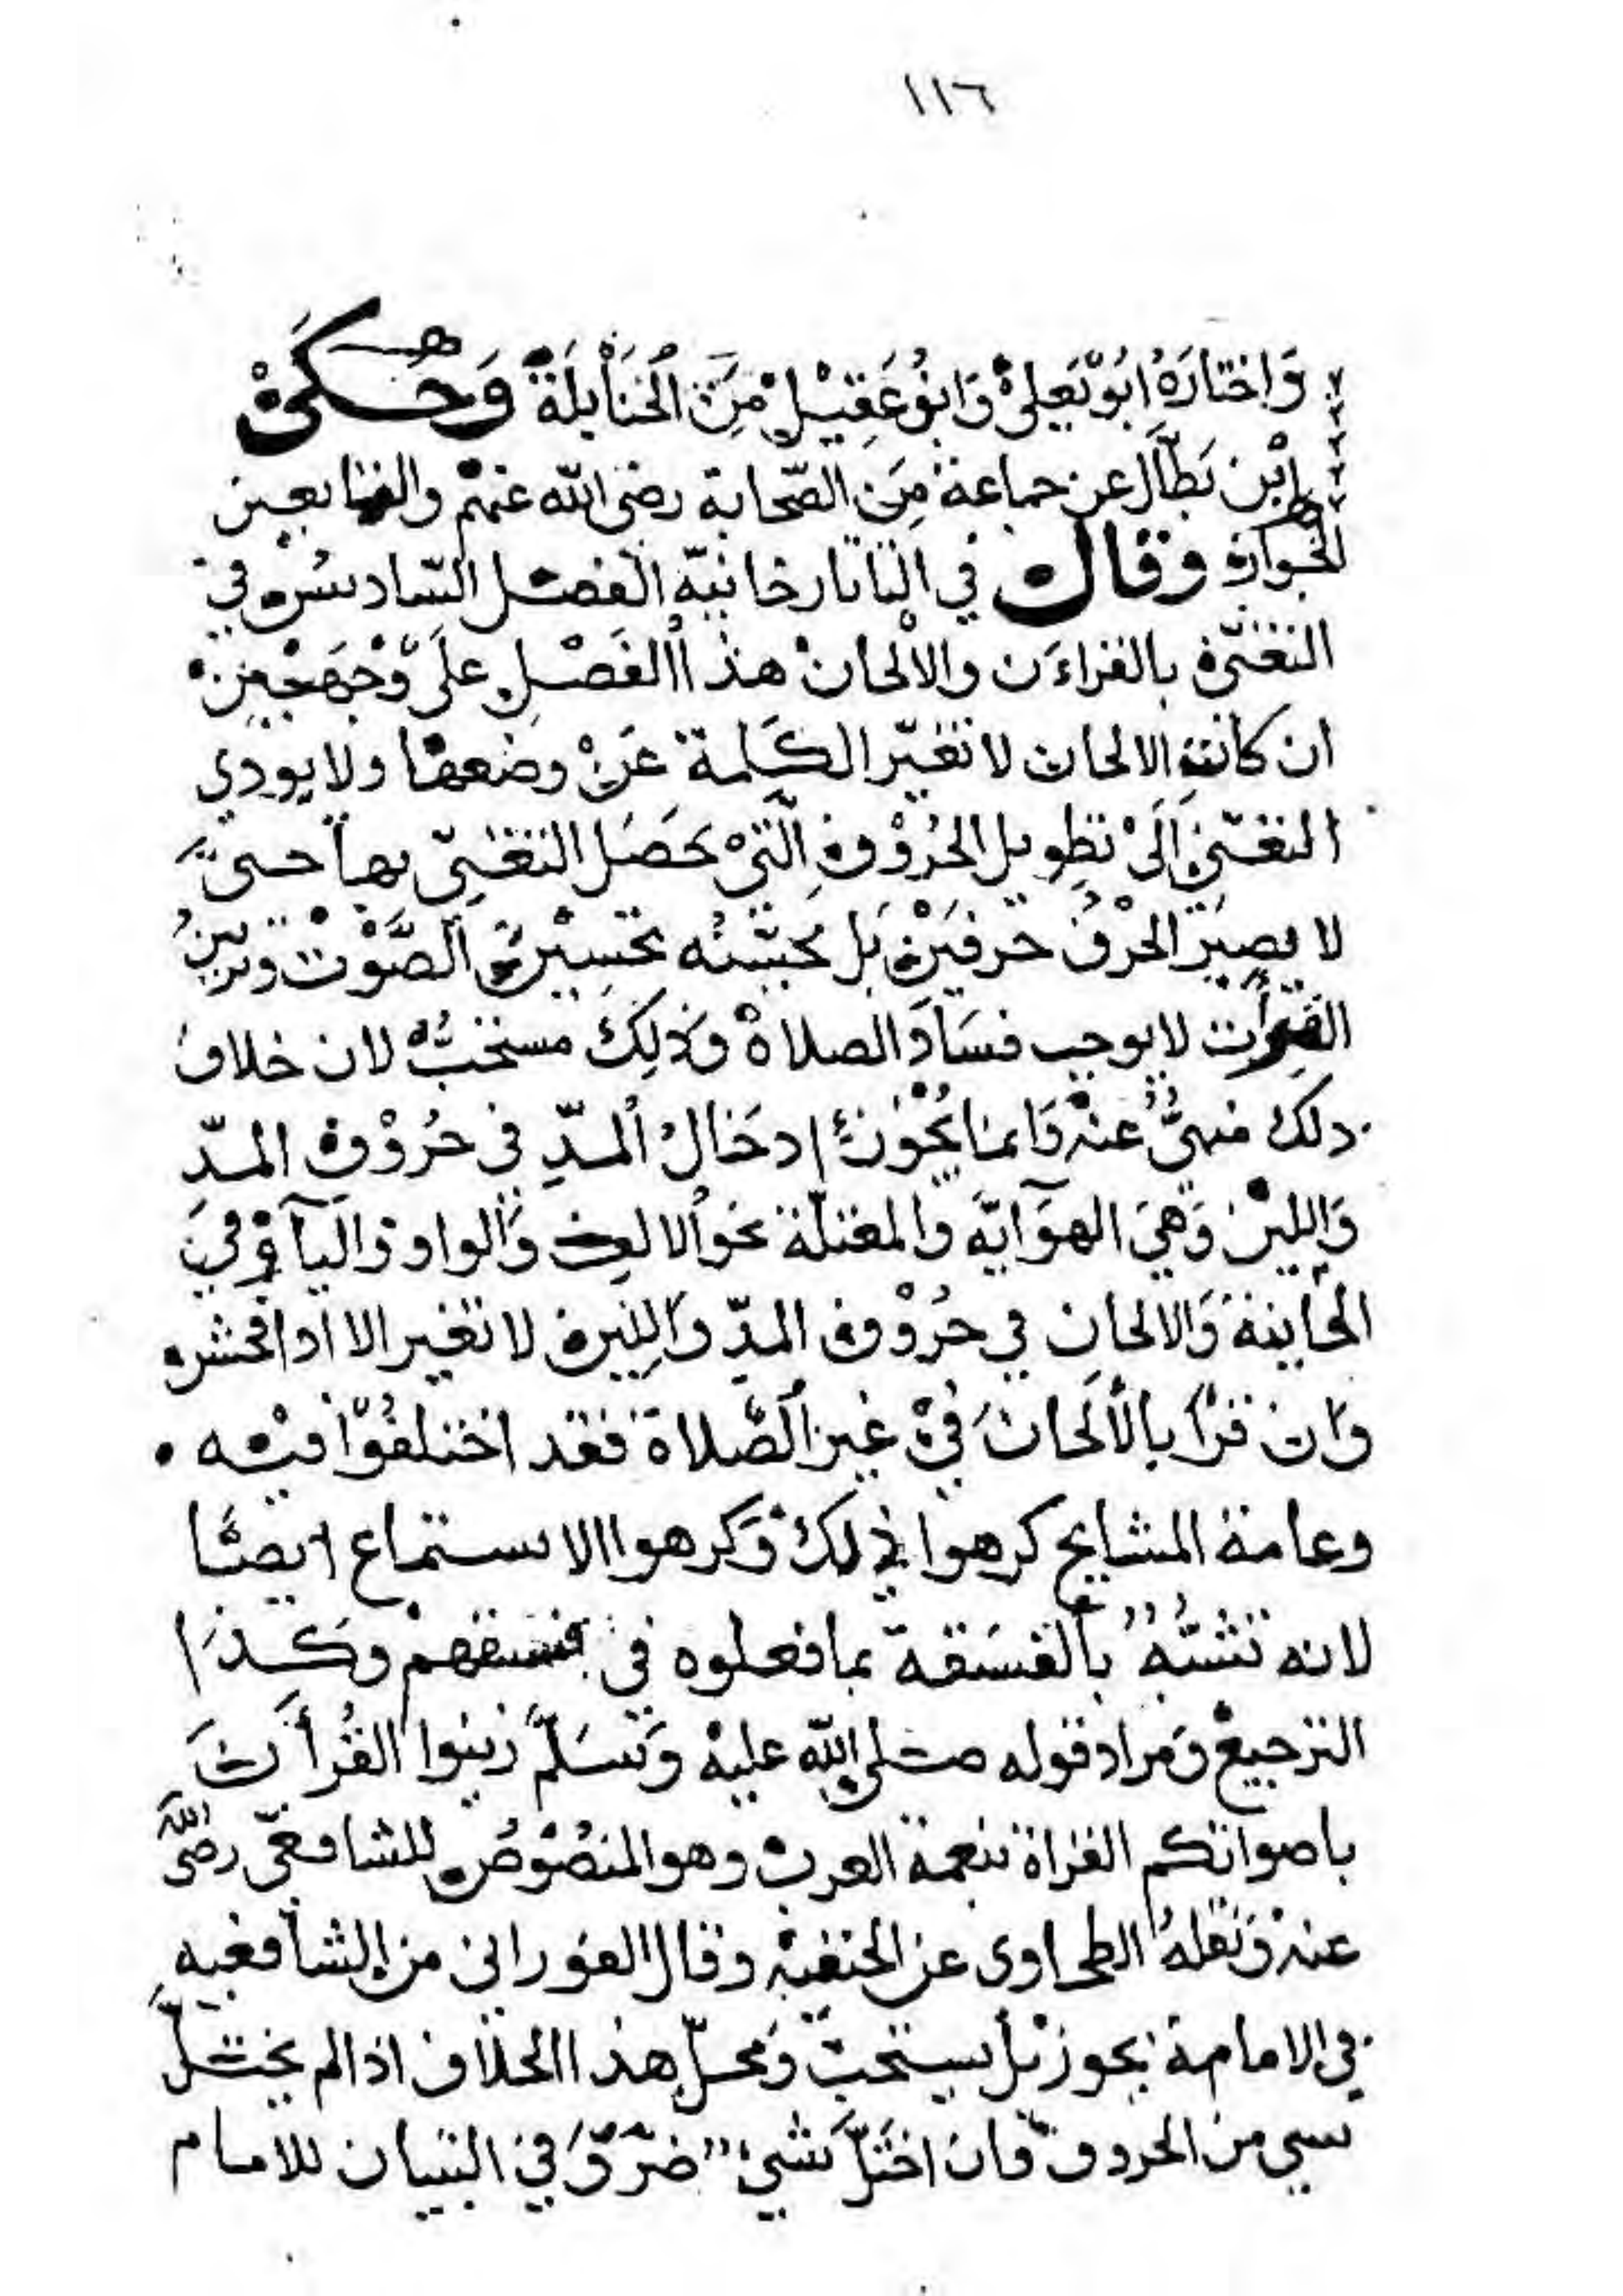 ١١٦
وَاخْتَارَهُ ابُوْ يَعْلىْ وَابْنُ عَقِيْلْ مِنَ الْحَنَابِلَة وَحُكىْ
اِبْن بَطّال عن جماعة مِنَ الصّحابة رضى الله عنهم والتابعين
الجواز وقال في التاتارخانيّه الفصل السّادس في
التغنّى بالقراءَن والالحان هذا الفَصْل علَى وَجْهَيْن
ان كانت الالحان لا تغيّر الكَلمة عَنْ وضعها ولا يودي
التغنّى اَلَىْ تطويل الحُرُوْفِ الَّتىْ يحصَل التغنّى بها حتىّ
لا يصِيَر الحْرفُ حرفَيْن بَل يحسّنُه تحسِيْن الصَّوْت وتزيينُ
القرأت لا يوجب فسَادَ الصلاة وَذلِكَ مستحبُّ لان خلاف
ذلك منهىُّ عنه وَانما يجُوْز ادخَالُ المدّ فى حُرُوْف المدّ
وَاللين وَهىَ الهوَايّه والمعتلّة نحو الالف وَالواو وَاليآ وفي
الخاينة وَالالحان في حُرُوْف المدّ وَاللين لا تغير الا اذا فحش
وَان قرأ بالألحان في غير الصّلاة فقد اختلفُوْا فيه
وعامة المشايخ كرهوا ذلك وَكرهوا الاستماع ايضًا
لانه تشبُّهُ بالفسَقة بما فعلوه في فسقهمْ وكذا
الترجيع وَمراد قوله صلى الله عليه وَسَلّم زينوا القُرأَن
باصواتكم القراة بنغمة العرب وهو المنصُوْصُ للشافعى رضى الله
عنه وَنقلهُ الطحاوى عن الحنفيه وقال الفورانى من الشافعيه
في الامامة يجوز بَل يستحب وَمحلّ هذا الخلاف اذا لم يختلّ
شي من الحروف فان اختَلَّ شي في التبيان للامام